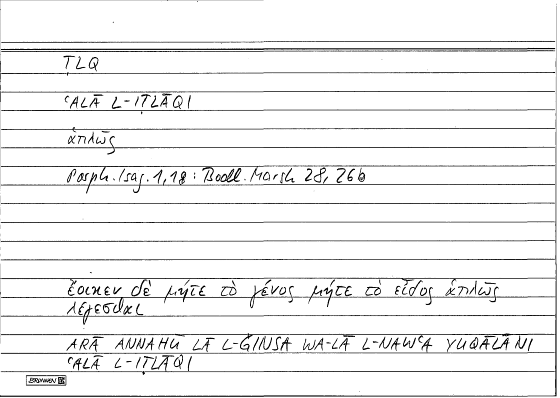 ṬLQ
ʿALĀ L-IṬLĀQI
ἁπλῶς
Porph. Isag. 1,18 : Bodl. Marsh 28, 26b
ἔοικεν δὲ μήτε τὸ γένος μήτε τὸ εἶδος ἁπλῶς
λέγεσθαι
ARĀ ANNAHŪ LĀ L-ǦINSA WA-LĀ L-NAWʿA YUQĀLĀNI
ʿALĀ L-IṬLĀQI